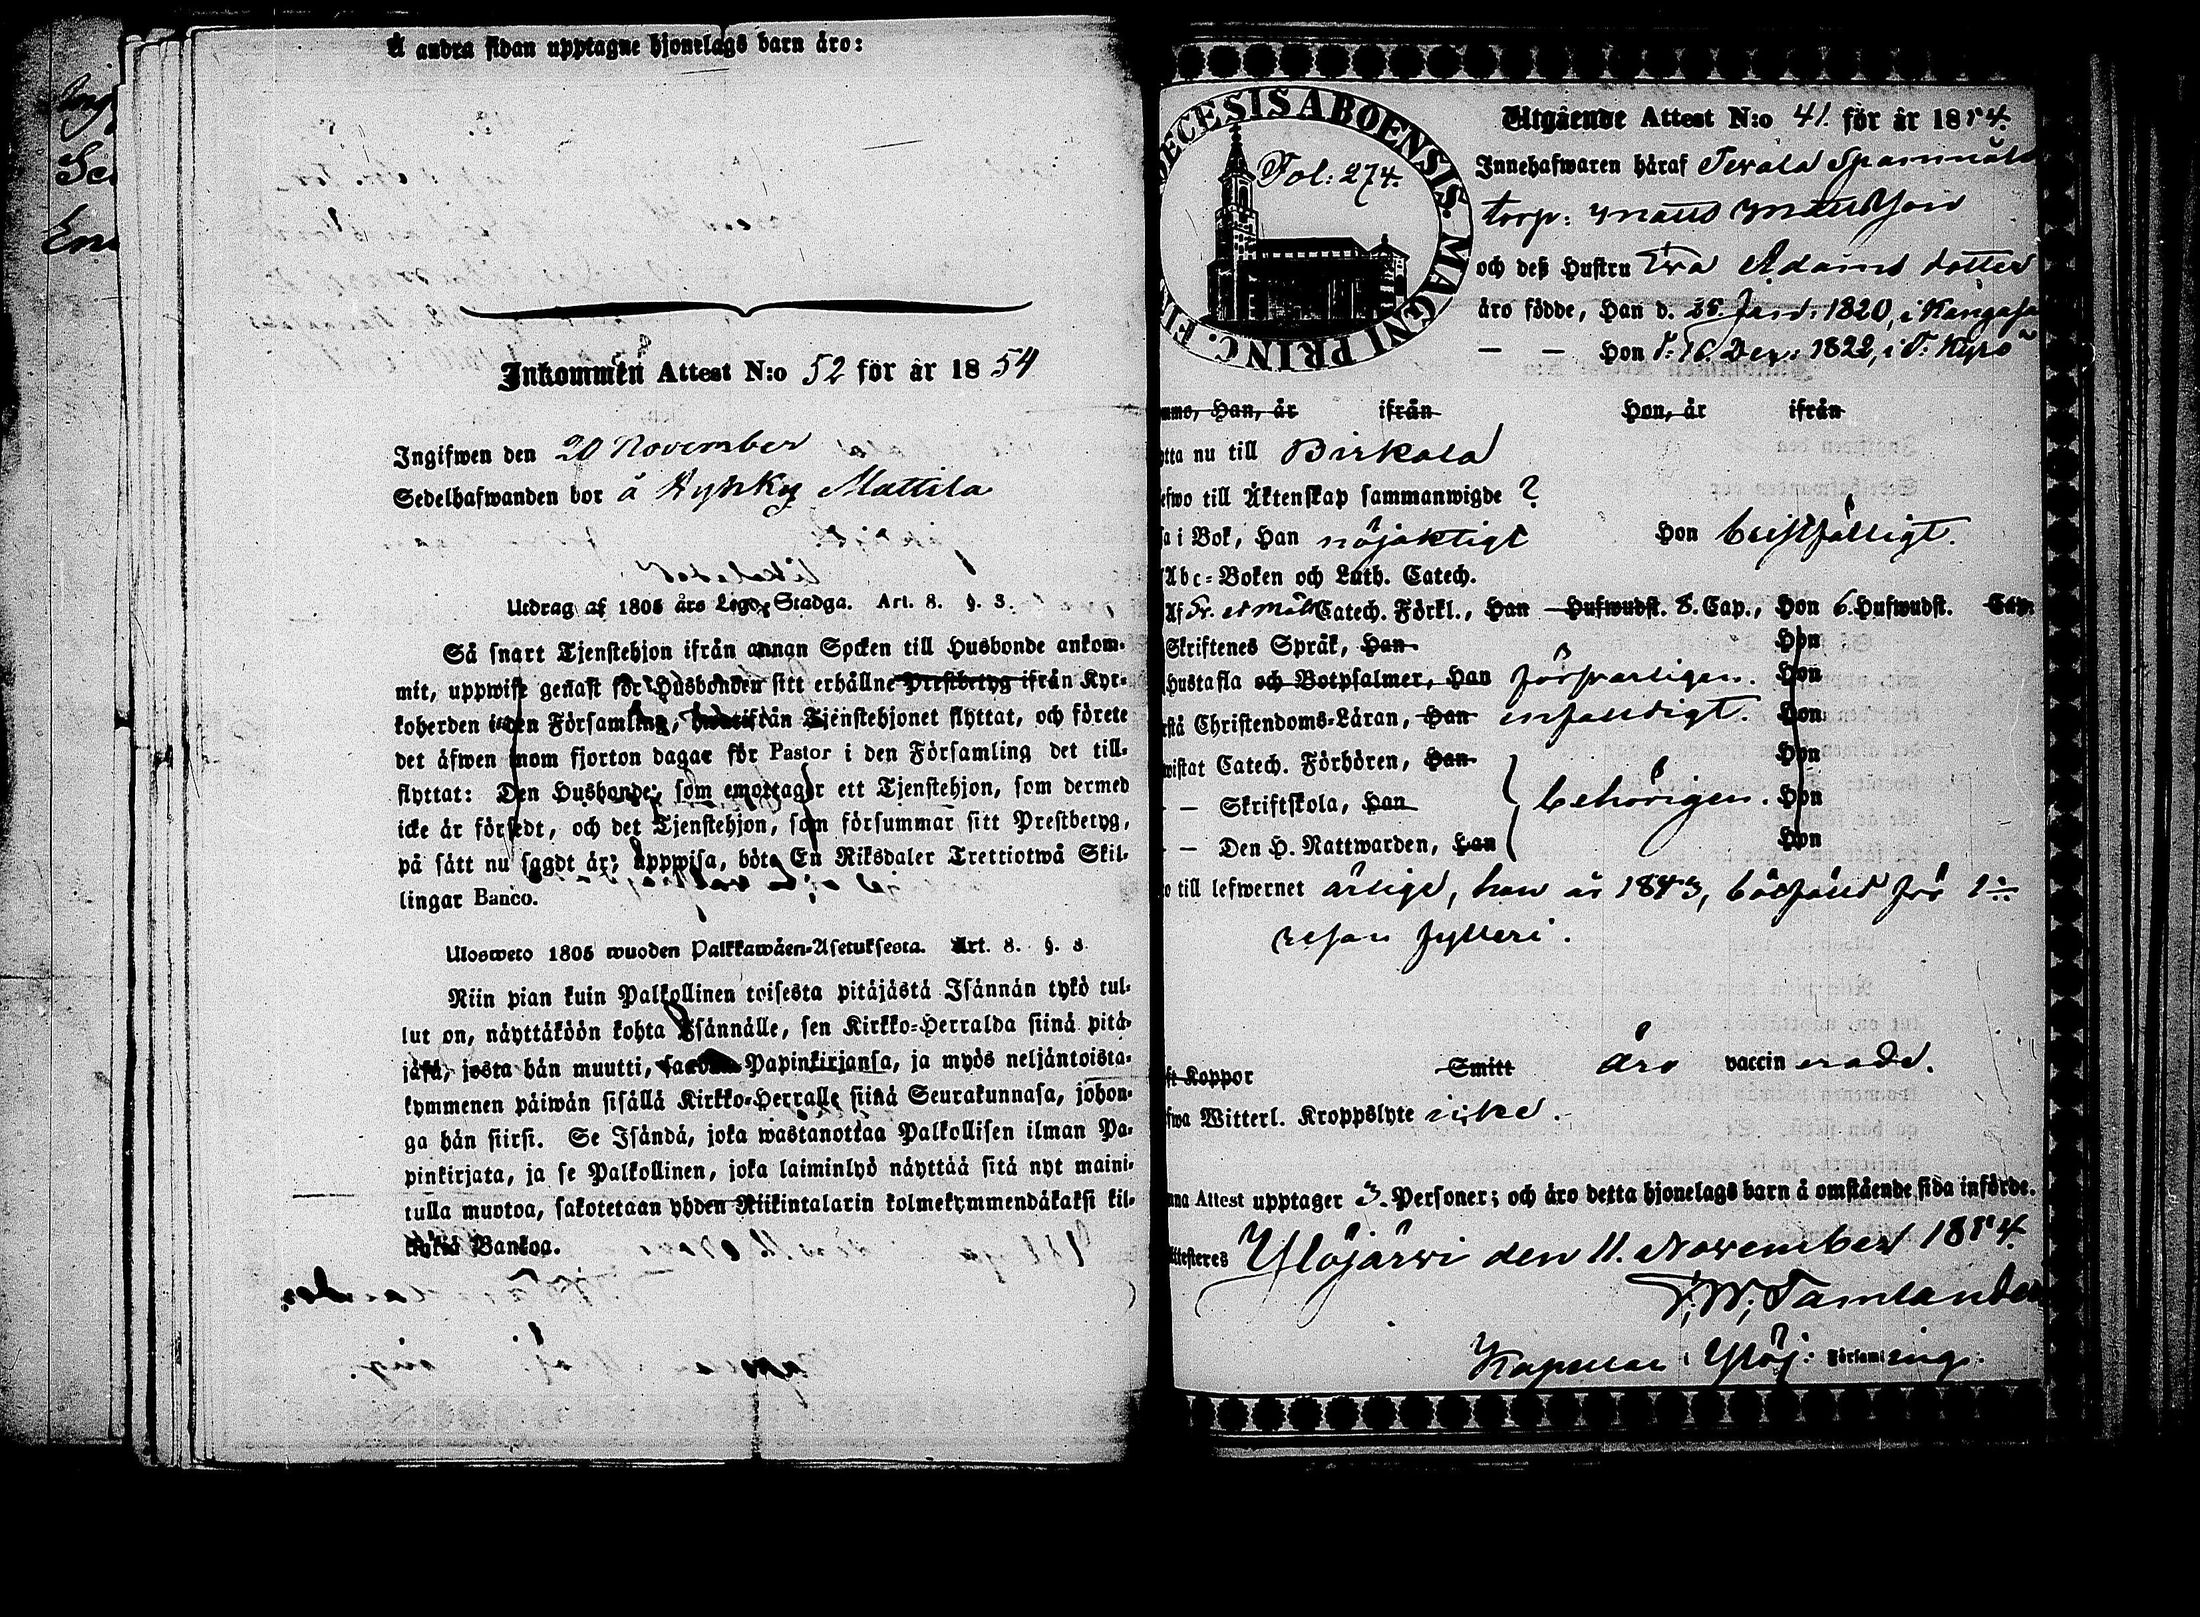 Å andra sidan upptagne hjonelags barn äro:
Inkommen Attest N:o 52 för år 1854
Ingifwen den 20 November
Sedelhafwanden bor å Kyrkg Mattila
Utdrag af 1805 års Lego-Stadga. Art. 8. §. 3.
Så snart Tjenstehjon ifrån annan Socken till Husbonde ankom-
mit, uppwise genast för Husbonden sitt erhållne Prestbetyg ifrån Kyr-
koherden i den Församling, hwarifrån Tjenstehjonet flyttat, och förete
det äfwen inom fjorton dagar för Pastor i den Församling det till-
flyttat: Den Husbonde, som emottager ett Tjenstehjon, som dermed
icke är försedt, och det Tjenstehjon, som försummar sitt Prestbetyg,
på sätt nu sagdt är, uppwisa, böte En Riksdaler Trettiotwå Skil-
lingar Banco.
Ulosweto 1805 wuoden Palkkawäen-Asetuksesta. Art. 8. §. 3.
Niin pian kuin Palkollinen toisesta pitäjästä Isännän tykö tul-
lut on, näyttäköön kohta Isännälle, sen Kirkko-Herralda siinä pitä-
jäsä, josta hän muutti, saadun Papinkirjansa, ja myös neljäntoista-
kymmenen päiwän sisällä Kirkko-Herralle siinä Seurakunnasa, johon-
ga hän siirsi. Se Isändä, joka wastanottaa Palkollisen ilman Pa-
pinkirjata, ja se Palkollinen, joka laiminlyö näyttää sitä nyt maini-
tulla muotoa, sakotetaan yhden Riikintalarin kolmekymmendäkaksi kil-
lingiä Bankoa.
ECESIS ABOENSIS. MAGNI PRINC. FIN
Fol: 274.
Utgående Attest N:o 41. för år 1854.
Innehafwaren häraf
torp: Matts Mattsson
och deß Hustru Eva Adams dotter
äro födde, Han d. 25. Jan. 1820, i Kangasa
— — Hon d. 16 Dec. 1822, i T. Kyrö
Han, år ifrån Hon, år ifrån
tta nu till Birkala
efwo till Äktenskap sammanwigde ?
a i Bok, Han nöjaktigt Hon bristfälligt.
Abc-Boken och Luth. Catech.
Af Catech. Förkl., Han Hufwudst. 8. Cap., Hon 6. Hufwudst. Cap.
Skriftenes Språk, Han Hon
Hustafla och Botpsalmer, Han försvarligen. Hon
stå Christendoms-Läran, Han enfaldigt. Hon
wistat Catech. Förhören, Han Hon
— Skriftskola, Han behörigen. Hon
— Den H. Nattwarden, Han Hon
o till lefwernet ärlige, han år 1843, bötfälld för 1:a
resan fylleri.
ft Koppor Smitt äro vaccinerade.
fwa Witterl. Kroppslyte icke.
nna Attest upptager 3. Personer; och äro detta hjonelags barn å omstående sida införde.
ttesteres Ylöjärwi den 11. November 1854.
F. W. Tamlander
Kapellan i Ylöj: Församling.